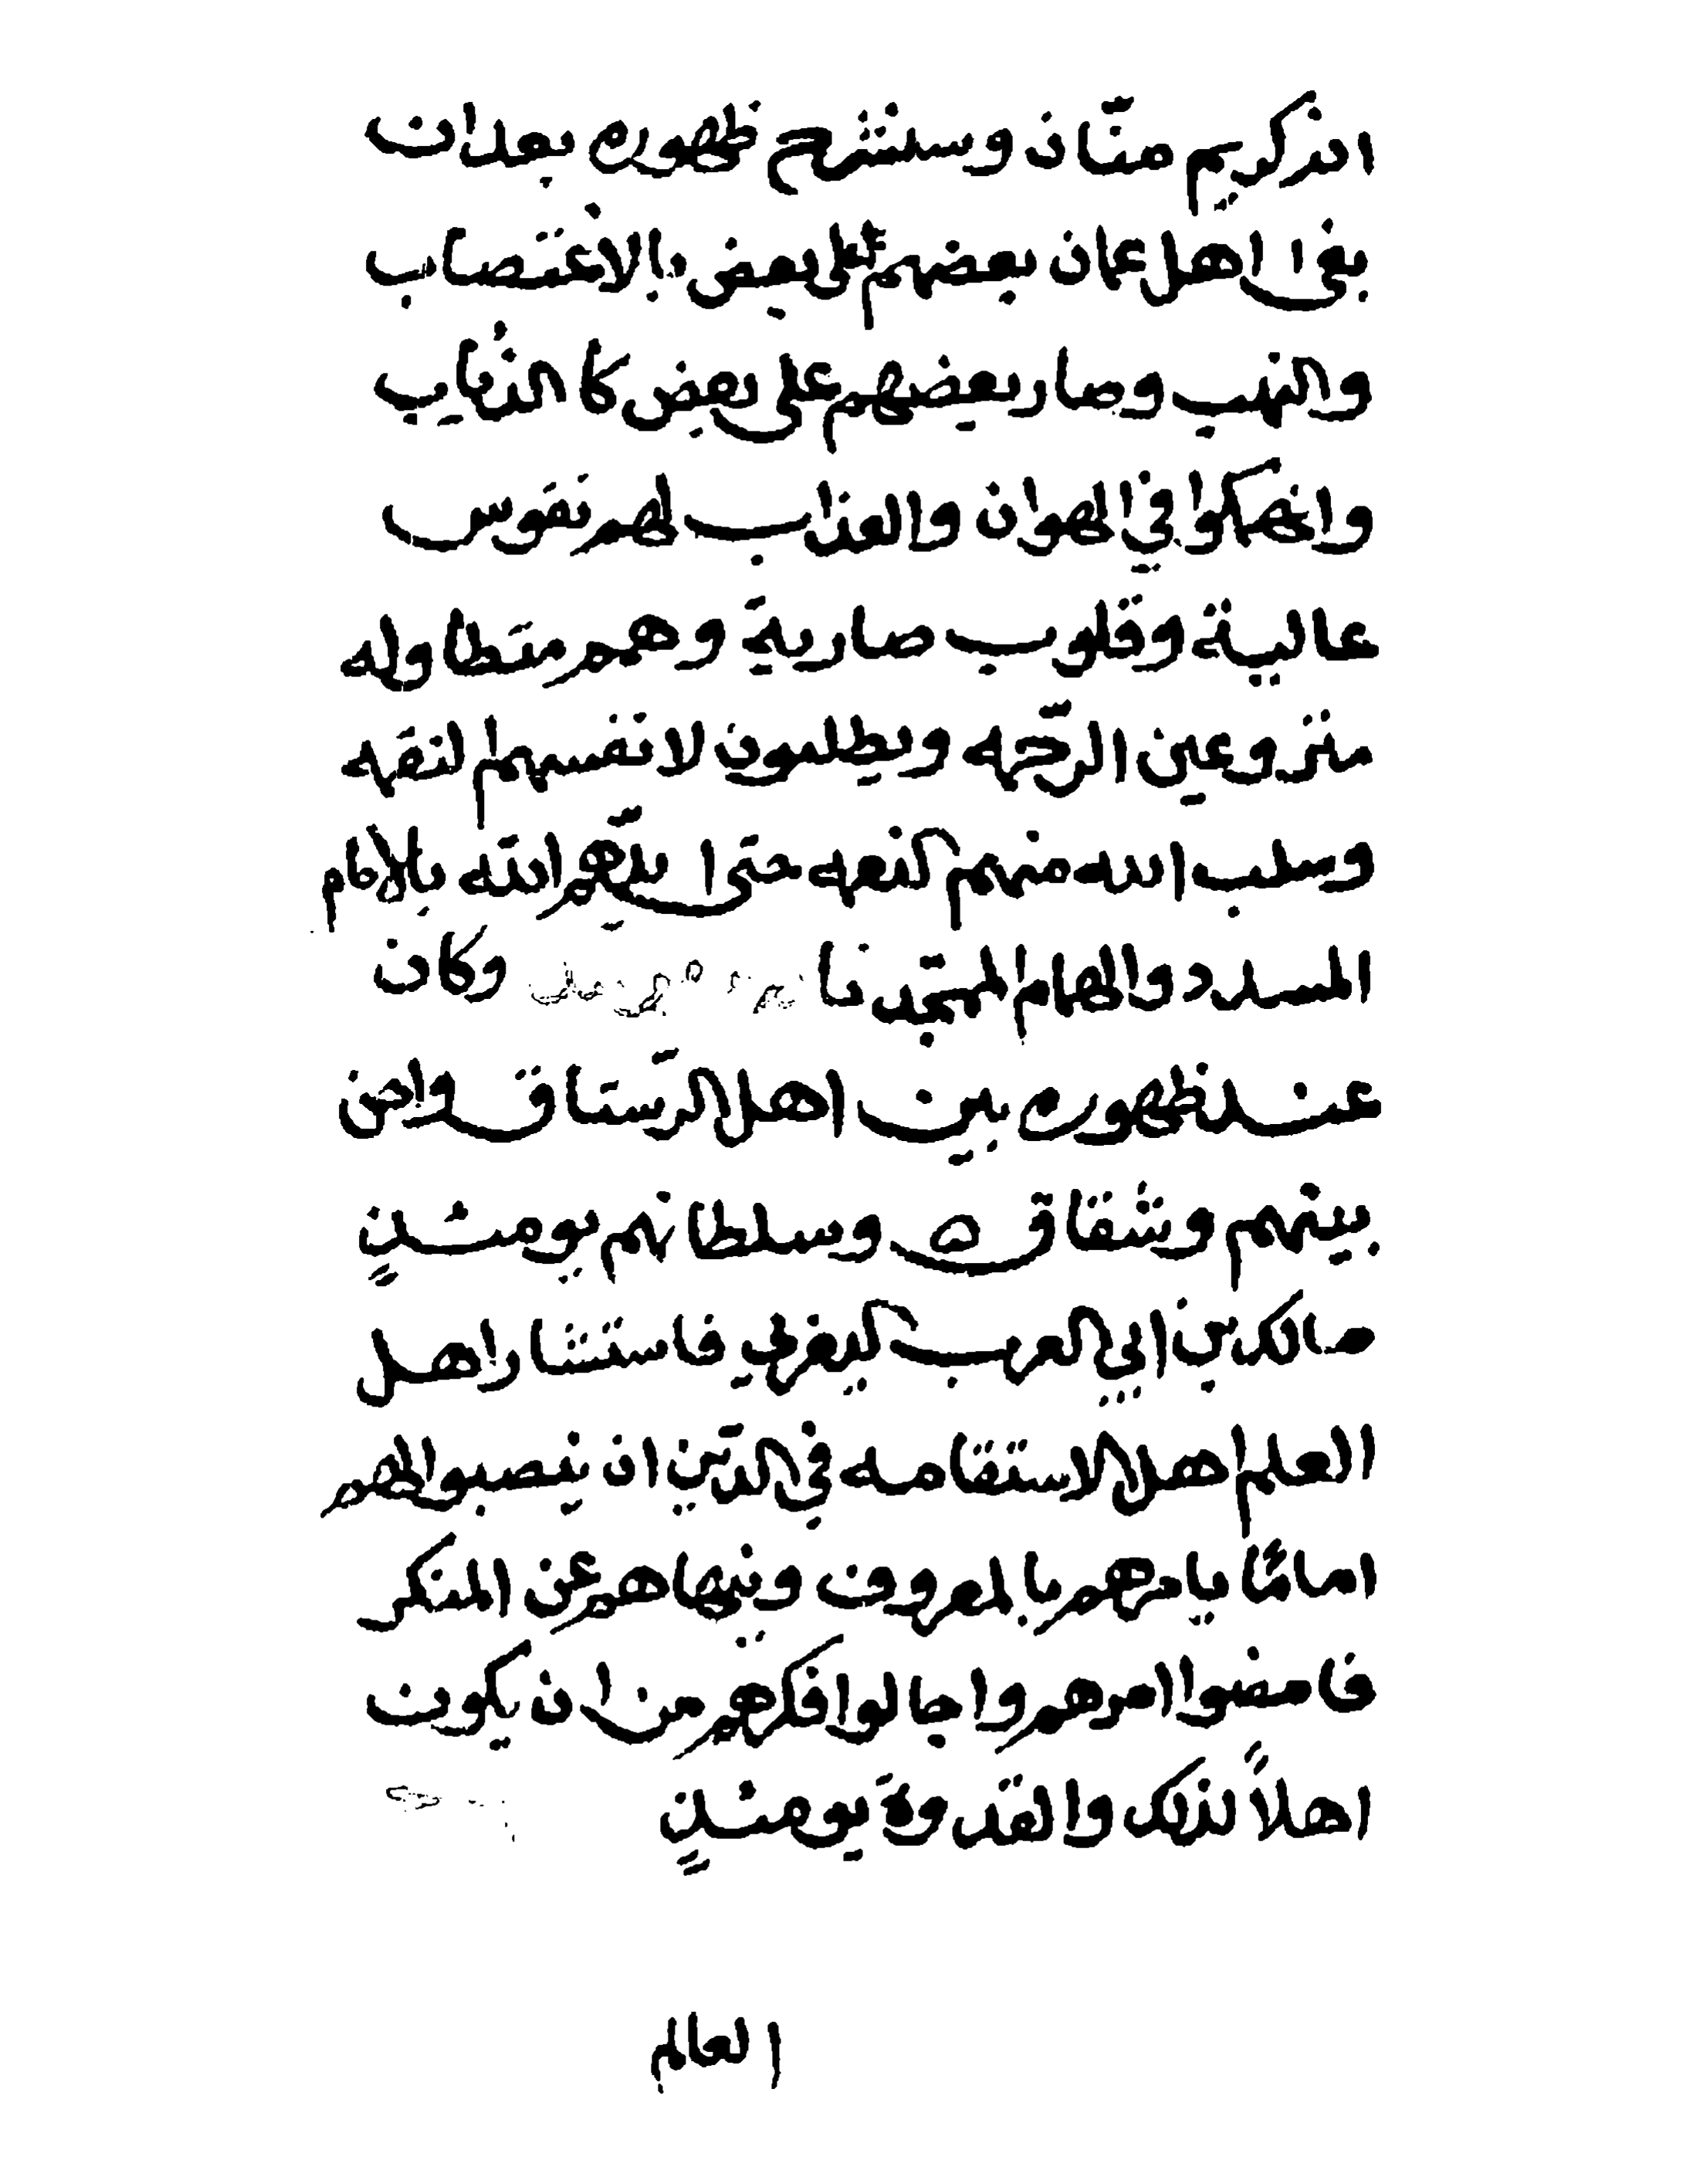 انه كريم منّان وسنشرح ظهوره بعد ان
بغى اهل عمان بعضهم على بعض بالاغتصاب
والنهب وصار بعضهم على بعض كا الذياب
وانهمكوا في الهوان والعذاب لهم نفوس
عالية وقلوب صارية وهمم متطاوله
منزوعين الرّحمه ويطلبون لانفسهم النقمه
وسلب الله منهم النعمه حتى ايدهم الله بالامام
المسدد والهمام الممجد نا وكان
عند ظهوره بين اهل الرستاق واحن
بينهم وشقاق ه وسلطانهم يومئذٍ
مالك بن ابي العرب اليعربي فاستشار اهل
العلم اهل الاستقامه في الدّين ان ينصبوا لهم
امامًا يامرهم بالمعروف وينهاهم عن المنكر
فامضوا امرهم واجالوا فكرهم من ان يكون
اهلاً لذلك والقدوة يومئذٍ
العالم